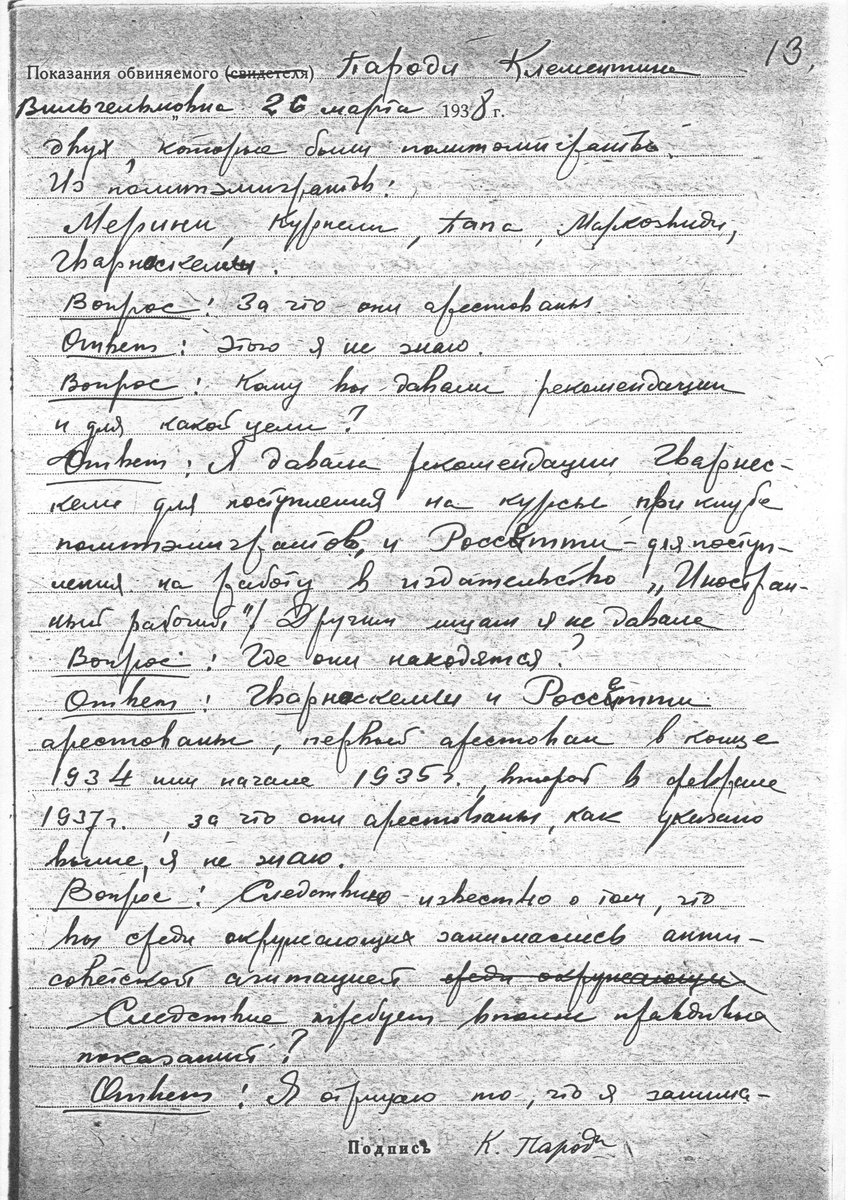 13.
Показания обвиняемого (свидетеля) Пароди Клементина
Вильгельмовна 26 марта 1938 г.
двух, которые были политэмигранты.
Из политэмигрантов:
Мерини, Гварнаскелли.
Вопрос: За что они арестованы.
Ответ: Этого я не знаю.
Вопрос: Кому вы давали рекомендации
и для какой цели?
Ответ: Я давала рекомендации Гварнас-
кели для поступления на курсы при клубе
политэмигрантов, и Россетти - для поступ-
ления на работу в издательство „Иностран-
ный рабочий"/ Другим лицам я не давала
Вопрос: Где они находятся?
Ответ: Гварнаскелли и Россетти
арестованы, первый арестован в конце
1934 или начале 1935 г., второй в феврале
1937 г., за что они арестованы, как указано
выше, я не знаю.
Вопрос: Следствию известно о том, что
вы среди окружающих занимались анти-
советской агитацией среди окружающих
Следствие требует вполне правдивых
показаний?
Ответ: Я отрицаю то, что я занима-
Подпись К. Пароди